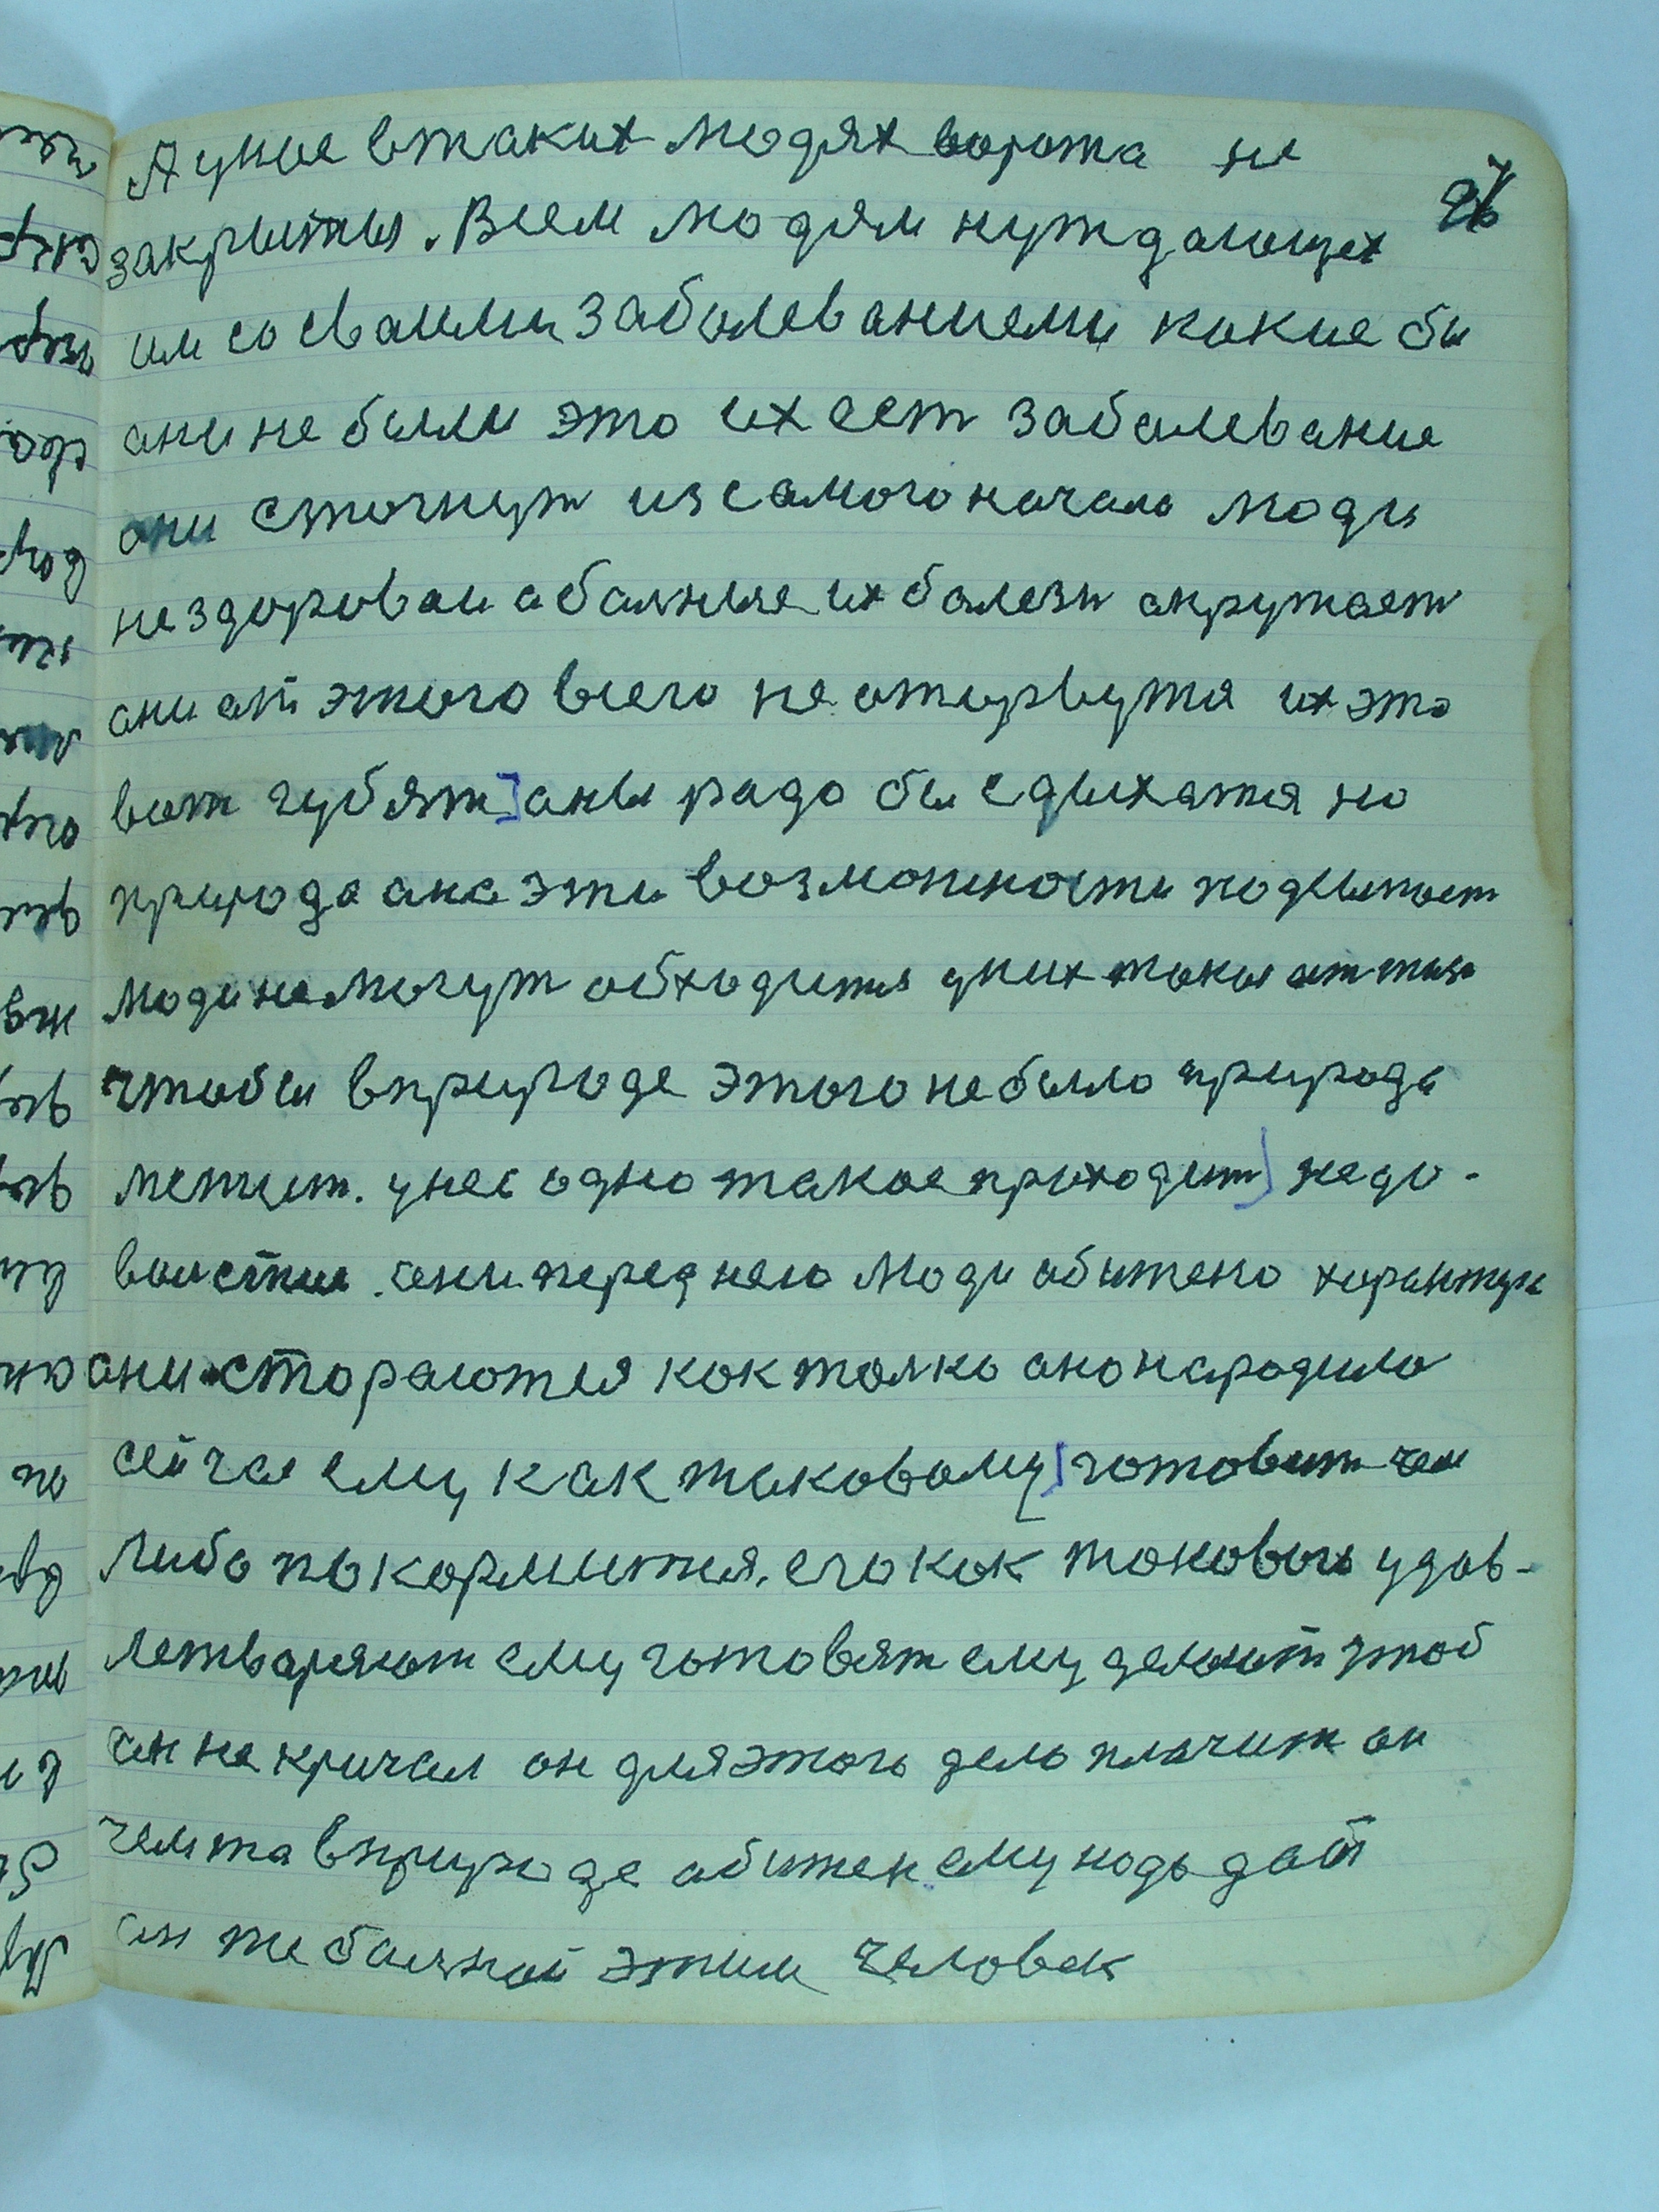 А унас втаких людях ворота не
закрытыя. Всем людям нуждающех
им со сваими заболеваниеми какие бы
они не были это их ест заболевание
они стогнут из самого начало люди
не здороваи а балные их болезн окружает
они от этого всего не оторвутся их это
вот губят] аны радо бы сдыхатя но
природа ана эти возможности поджимает
люди не могут обходится у них такия
чтобы вприроде этого не было природа
метит. унас одно такое приходит] недо-
ваиствие. они перед нею люди обижено
ани стораются как толко оно народило
сейчас ему как таковому] готовит чем
либо покормится. его как токового удов-
летваряют ему готовят ему делоит чтоб
ан не кричал он для этого дело плачит он
чемта вприроде обижен ему надо дат
ан же балной этим человек